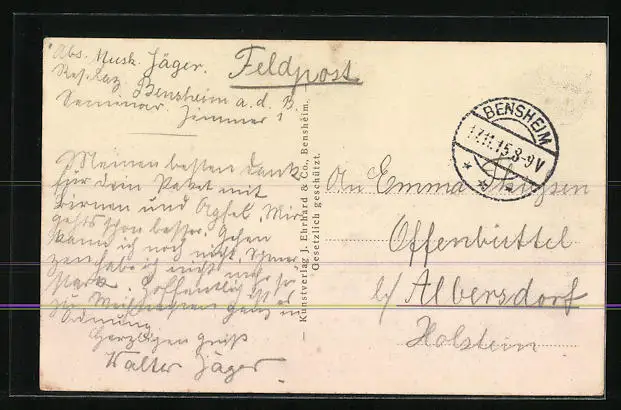 Abs. Musk. Jäger.
Res. Laz. Bensheim a. d. B.
Seminar. Zimmer 1
Feldpost
Meinen besten Dank
für dein Paket mit
Birnen und Apfel. Mir
gehts schon besser. Gehen
kann ich noch nicht. Schmer
zen habe ich nicht mehr so
stark. Hoffentlich ist
zu Weihnachten ganz in
Ordnung
Herzlichen Gruß
Walter Jäger
Kunstverlag J. Ehrhard & Co., Bensheim.
Gesetzlich geschützt.
BENSHEIM
17.11.15.8-9V
An Emma
Offenbüttel
b/ Albersdorf
Holstein